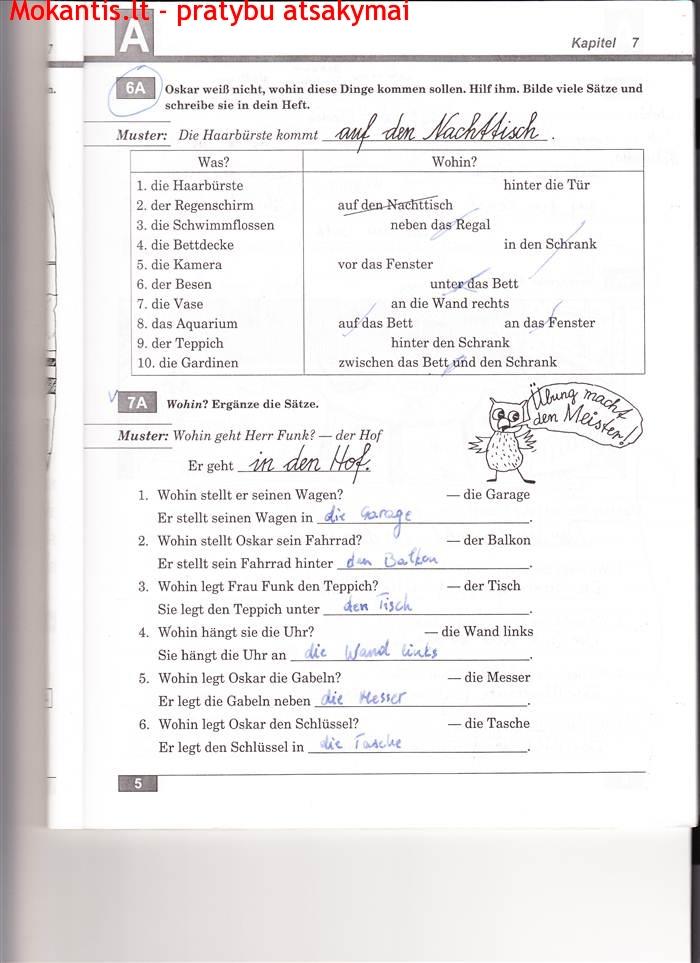 Mokantis.lt - pratybu atsakymai
A
Kapitel 7
6A Oskar weiß nicht, wohin diese Dinge kommen sollen. Hilf ihm. Bilde viele Sätze und
schreibe sie in dein Heft.
Muster: Die Haarbürste kommt auf den Nachttisch.
Was? Wohin?
1. die Haarbürste hinter die Tür
2. der Regenschirm auf den Nachttisch
3. die Schwimmflossen neben das Regal
4. die Bettdecke in den Schrank
5. die Kamera vor das Fenster
6. der Besen unter das Bett
7. die Vase an die Wand rechts
8. das Aquarium auf das Bett an das Fenster
9. der Teppich hinter den Schrank
10. die Gardinen zwischen das Bett und den Schrank
7A Wohin? Ergänze die Sätze.
Übung macht
den Meister!
Muster: Wohin geht Herr Funk? — der Hof
Er geht in den Hof.
1. Wohin stellt er seinen Wagen? — die Garage
Er stellt seinen Wagen in die Garage.
2. Wohin stellt Oskar sein Fahrrad? — der Balkon
Er stellt sein Fahrrad hinter den Balkon.
3. Wohin legt Frau Funk den Teppich? — der Tisch
Sie legt den Teppich unter den Tisch.
4. Wohin hängt sie die Uhr? — die Wand links
Sie hängt die Uhr an die Wand links.
5. Wohin legt Oskar die Gabeln? — die Messer
Er legt die Gabeln neben die Messer.
6. Wohin legt Oskar den Schlüssel? — die Tasche
Er legt den Schlüssel in die Tasche.
5